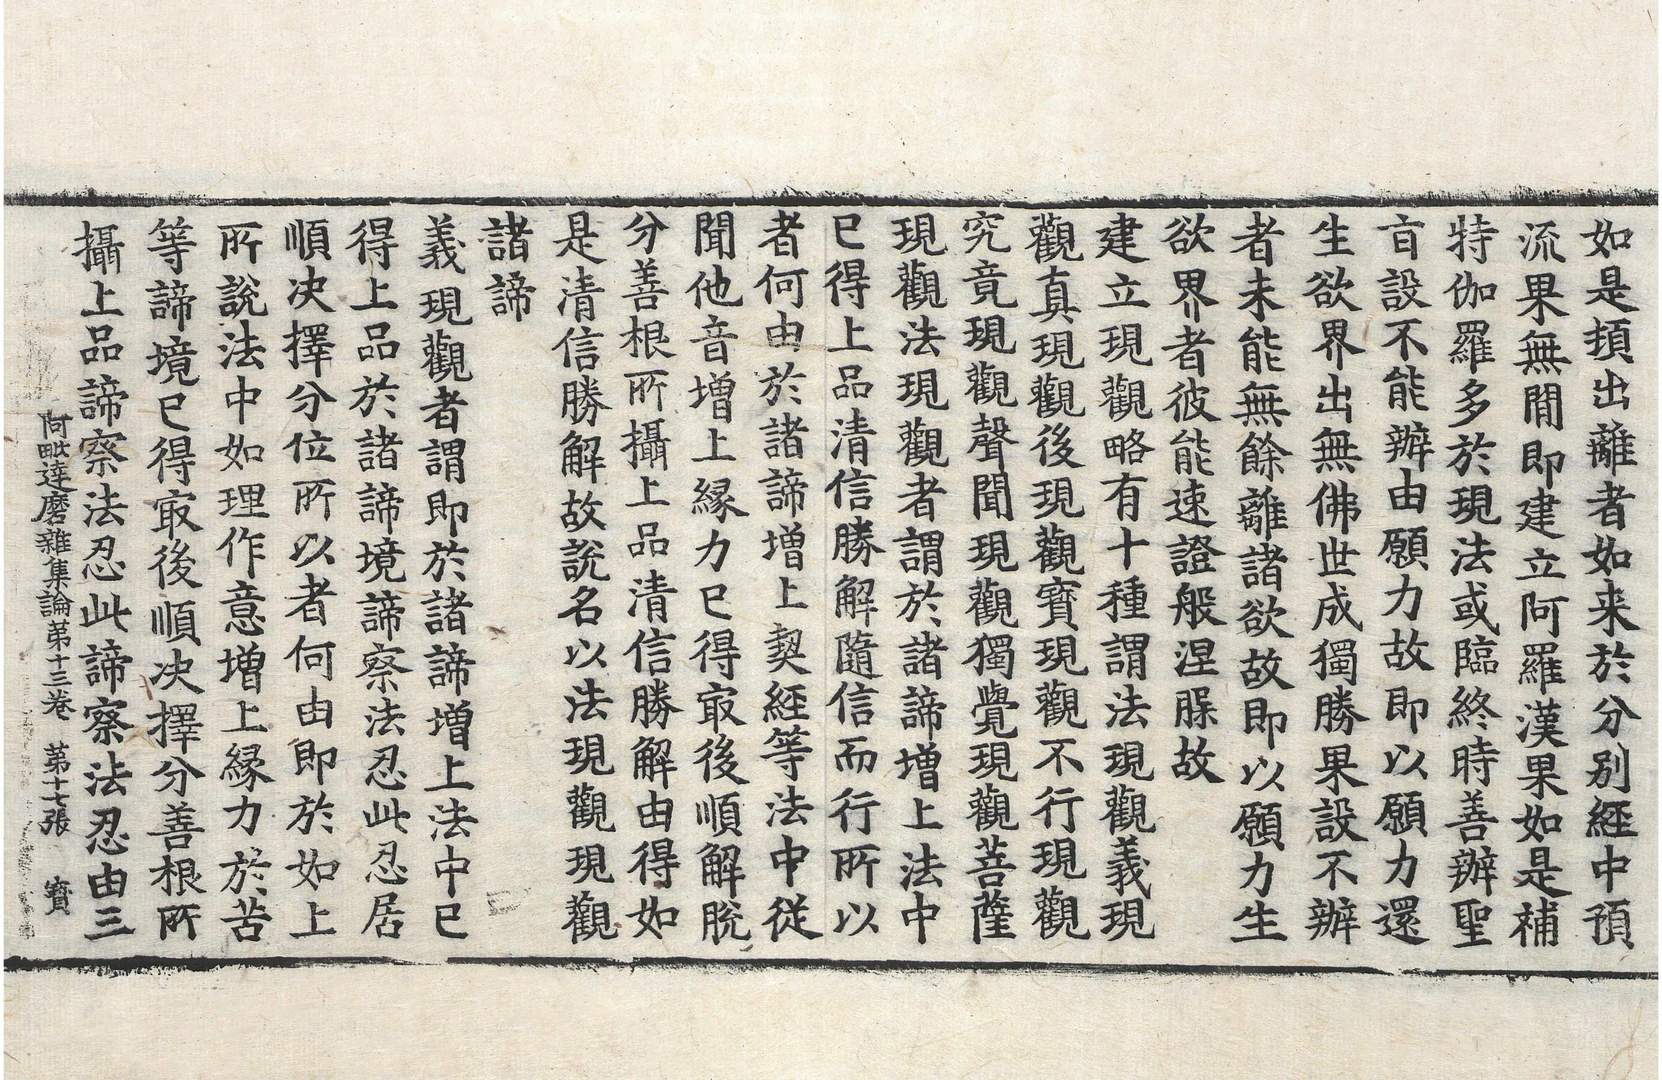 如是頓出離者如来於分別經中預
流果無間即建立阿羅漢果如是補
特伽羅多於現法或臨終時善辦聖
旨設不能辦由願力故即以願力還
生欲界出無佛世成獨勝果設不辦
者未能無餘離諸欲故即以願力生
欲界者彼能速證般涅槃故
建立現觀略有十種謂法現觀義現
觀真現觀後現觀寶現觀不行現觀
究竟現觀聲聞現觀獨覺現觀菩薩
現觀法現觀者謂於諸諦增上法中
已得上品清信勝解隨信而行所以
者何由於諸諦增上契經等法中從
聞他音增上緣力已得冣後順解脫
分善根所攝上品清信勝解由得如
是清信勝解故說名以法現觀現觀
諸諦
義現觀者謂即於諸諦增上法中已
得上品於諸諦境諦察法忍此忍居
順决擇分位所以者何由即於如上
所說法中如理作意增上緣力於苦
等諦境已得冣後順决擇分善根所
攝上品諦察法忍此諦察法忍由三
阿毗達磨雜集論第十三卷 第十七張 寶